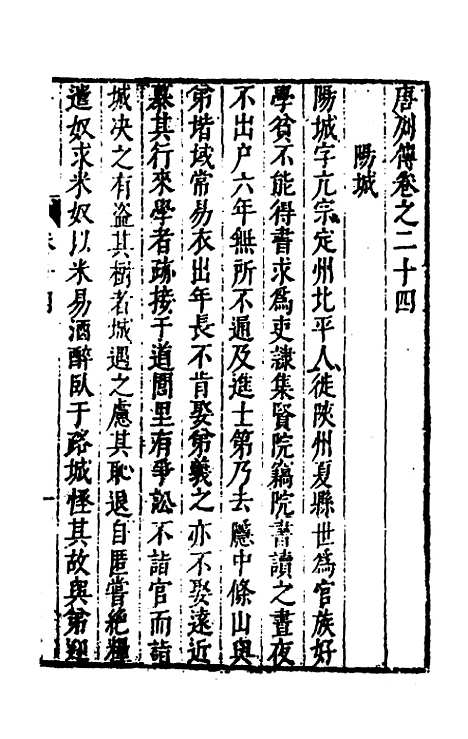 唐列傳卷之二十四
陽城
陽城字亢宗定州北平人徙陝州夏縣世為官族好
學貧不能得書求為吏隸集賢院竊院書讀之晝夜
不出户六年無所不通及進士第乃去隱中條山與
弟堦域常易衣出年長不肯娶弟義之亦不娶遠近
慕其行來學者跡接于道閭里有爭訟不詣官而詣
城决之有盗其樹者城遇之慮其恥退自匿嘗絶糧
遣奴求米奴以米易酒醉臥于路城怪其故與弟迎